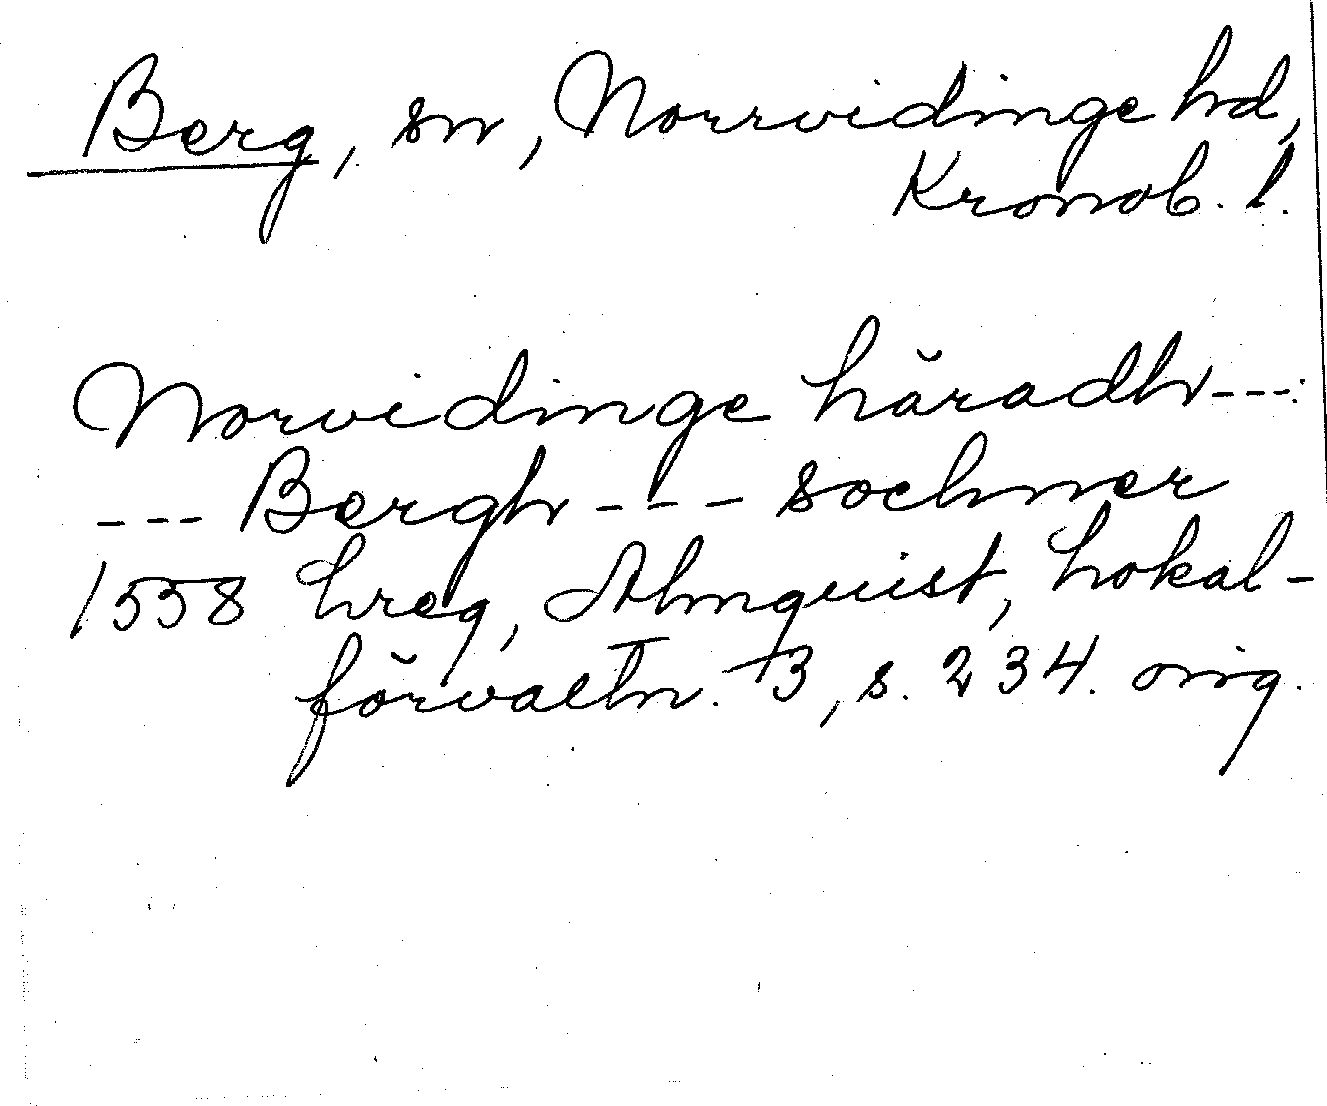 Berg, sn, Norrvidinge hd,
Kronob. l.
Norvidinge häradh---:
--- Bergh --- sochner
1558 hreg, Almquist, Lokal-
förvaltn. 3, s. 234. orig.